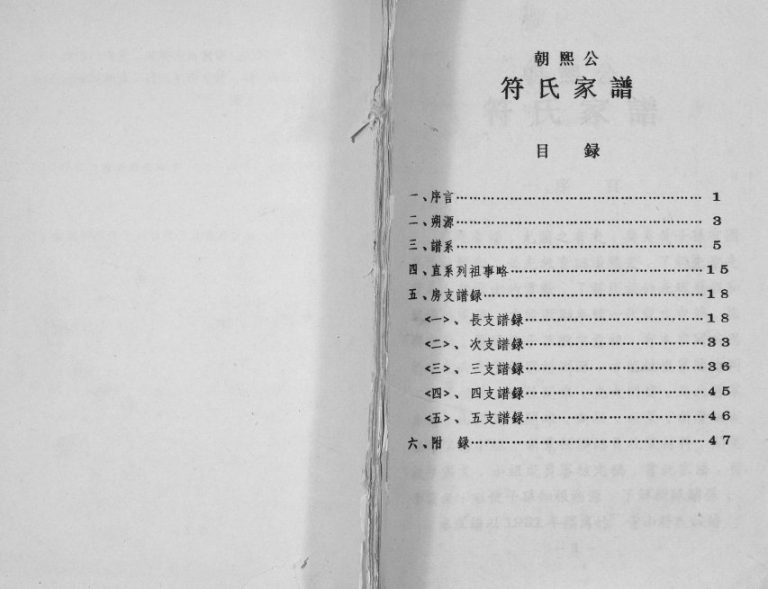 朝熙公
符氏家譜
目 録
一、序言………………………………………………1
二、朔源………………………………………………3
三、譜系………………………………………………5
四、直系列祖事略……………………………………15
五、房支譜録…………………………………………18
<一>、長支譜録……………………………………18
<二>、次支譜録……………………………………33
<三>、三支譜録……………………………………36
<四>、四支譜録……………………………………45
<五>、五支譜録……………………………………46
六、附 録……………………………………………47